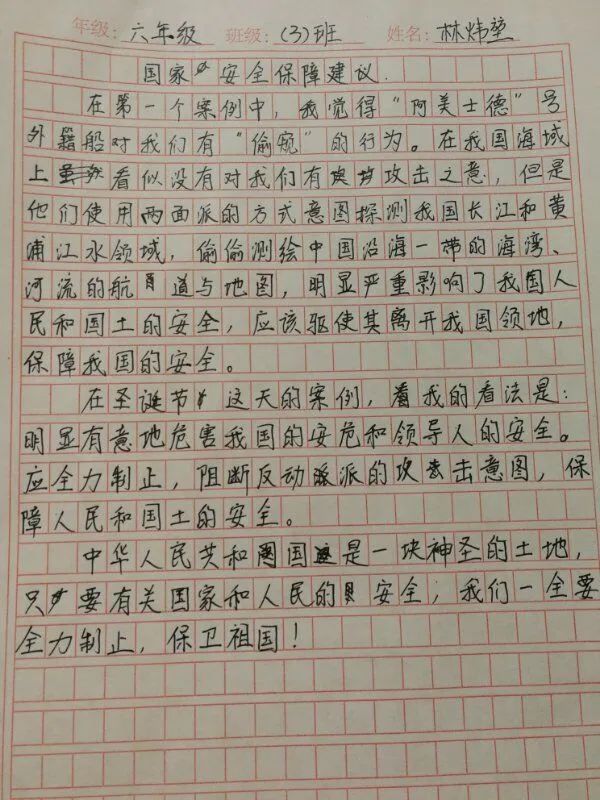 年级：六年级 班级：(3)班 姓名：林炜堃
国家安全保障建议.
在第一个案例中，我觉得"阿美士德"号
外籍船对我们有"偷窥"的行为。在我国海域
上看似没有对我们有攻击之意，但是
他们使用两面派的方式意图探测我国长江和黄
浦江水领域，偷偷测绘中国沿海一带的海湾、
河流的航道与地图，明显严重影响了我国人
民和国土的安全，应该驱使其离开我国领地，
保障我国的安全。
在圣诞节这天的案例，着我的看法是：
明显有意地危害我国的安危和领导人的安全。
应全力制止，阻断反动派的攻击意图，保
障人民和国土的安全。
中华人民共和国是一块神圣的土地，
只要有关国家和人民的安全；我们一全要
全力制止，保卫祖国！